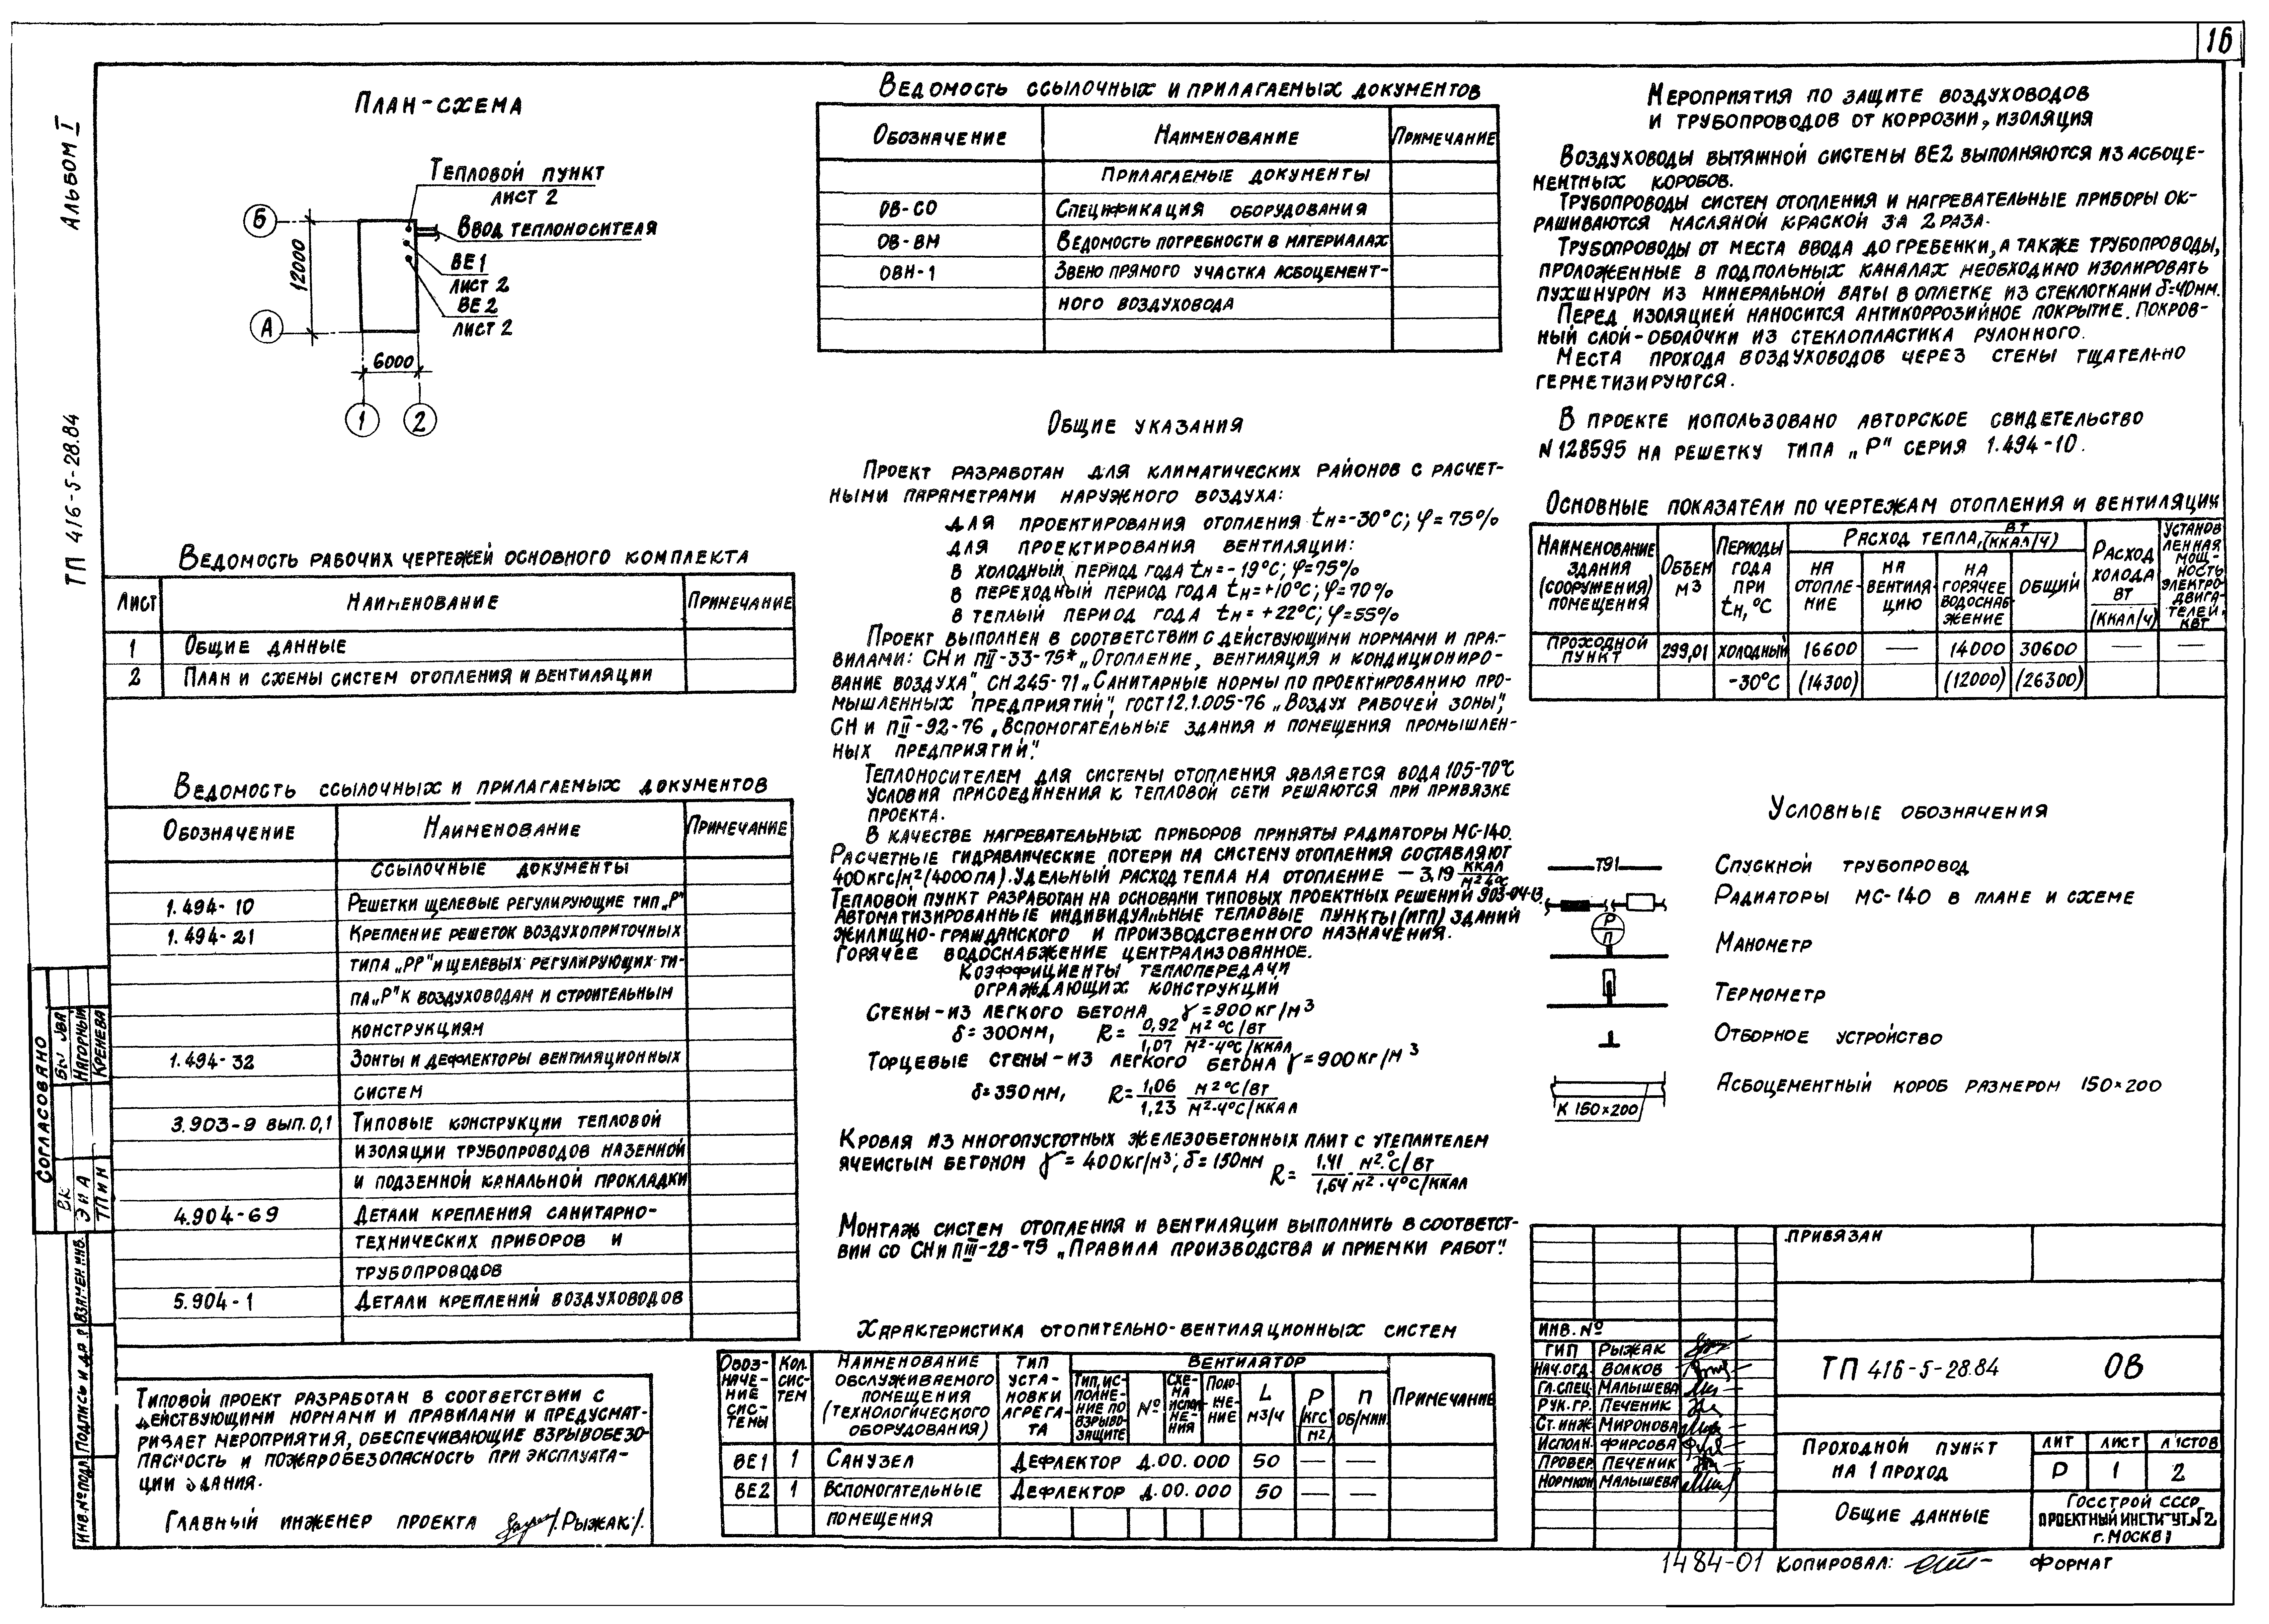 16
Альбом I
ТП 416-5-28.84
План-схема
Тепловой пункт
лист 2
Ввод теплоносителя
ВЕ1
лист 2
ВЕ2
лист 2
Б
А
12000
6000
1
2
Ведомость рабочих чертежей основного комплекта
Лист Наименование Примечание
1 Общие данные
2 План и схемы систем отопления и вентиляции
Ведомость ссылочных и прилагаемых документов
Обозначение Наименование Примечание
Ссылочные документы
1.494-10 Решетки щелевые регулирующие тип „Р"
1.494-21 Крепление решеток воздухоприточных
типа „РР" и щелевых регулирующих ти-
па „Р" к воздуховодам и строительным
конструкциям
1.494-32 Зонты и дефлекторы вентиляционных
систем
3.903-9 вып.0,1 Типовые конструкции тепловой
изоляции трубопроводов наземной
и подземной канальной прокладки
4.904-69 Детали крепления санитарно-
технических приборов и
трубопроводов
5.904-1 Детали креплений воздуховодов
Типовой проект разработан в соответствии с
действующими нормами и правилами и предусмат-
ривает мероприятия, обеспечивающие взрывобезо-
пасность и пожаробезопасность при эксплуата-
ции здания.
Главный инженер проекта /Рыжак/.
Согласовано
Нагорный
Кренева
ВК
ЭНА
ТПиН
Взамен инв.
Подпись и
Инв.№ подл.
Ведомость ссылочных и прилагаемых документов
Обозначение Наименование Примечание
Прилагаемые документы
ОВ-СО Спецификация оборудования
ОВ-ВМ Ведомость потребности в материалах
ОВН-1 Звено прямого участка асбоцемент-
ного воздуховода
Общие указания
Проект разработан для климатических районов с расчет-
ными параметрами наружного воздуха:
для проектирования отопления tн=-30°С; φ=75%
для проектирования вентиляции:
в холодный период года tн=-19°С; φ=75%
в переходный период года tн=+10°С; φ=70%
в теплый период года tн=+22°С; φ=55%
Проект выполнен в соответствии с действующими нормами и пра-
вилами: СН и П II-33-75* „Отопление, вентиляция и кондициониро-
вание воздуха", СН 245-71 „Санитарные нормы по проектированию про-
мышленных предприятий", ГОСТ 12.1.005-76 „Воздух рабочей зоны",
СН и П II-92-76 „Вспомогательные здания и помещения промышлен-
ных предприятий".
Теплоносителем для системы отопления является вода 105-70°С
Условия присоединения к тепловой сети решаются при привязке
проекта.
В качестве нагревательных приборов приняты радиаторы МС-140.
Расчетные гидравлические потери на систему отопления составляют
400кгс/м² (4000 Па). Удельный расход тепла на отопление - 3,19 ккал/м²ч°С
Тепловой пункт разработан на основани типовых проектных решений 903-04-13.
Автоматизированные индивидуальные тепловые пункты (ИТП) зданий
жилищно-гражданского и производственного назначения.
Горячее водоснабжение централизованное.
Коэффициенты теплопередачи
ограждающих конструкций
Стены-из легкого бетона γ=900кг/м³
δ=300мм, R= 0,92/1,07 м²°С/Вт / м²·ч°С/ккал
Торцевые стены-из легкого бетона γ=900кг/м³
δ=350мм, R= 1,06/1,23 м²°С/Вт / м²·ч°С/ккал
Кровля из многопустотных железобетонных плит с утеплителем
ячеистым бетоном γ=400кг/м³; δ=150мм R= 1,41/1,64 м²·°С/Вт / м²·ч°С/ккал
Монтаж систем отопления и вентиляции выполнить в соответст-
вии со СН и П III-28-75 „Правила производства и приемки работ".
Характеристика отопительно-вентиляционных систем
Обоз-начение системы Кол. систем Наименование обслуживаемого помещения (технологического оборудования) Тип установки агрегата Вентилятор Примечание
Тип, исполнение по взрывозащите № Схема исполнения Положение L м3/ч P (кгс/м2) п об/мин.
ВЕ1 1 Санузел Дефлектор Д.00.000 50 — —
ВЕ2 1 Вспомогательные Дефлектор Д.00.000 50 — —
помещения
Мероприятия по защите воздуховодов
и трубопроводов от коррозии, изоляция
Воздуховоды вытяжной системы ВЕ2 выполняются из асбоце-
ментных коробов.
Трубопроводы систем отопления и нагревательные приборы ок-
рашиваются масляной краской за 2 раза.
Трубопроводы от места ввода до гребенки, а также трубопроводы,
проложенные в подпольных каналах необходимо изолировать
пухшнуром из минеральной ваты в оплетке из стеклоткани δ=40мм.
Перед изоляцией наносится антикоррозийное покрытие. Покров-
ный слой-оболочки из стеклопластика рулонного.
Места прохода воздуховодов через стены тщательно
герметизируются.
В проекте использовано авторское свидетельство
N 128595 на решетку типа „Р" серия 1.494-10.
Основные показатели по чертежам отопления и вентиляции
Наименование здания (сооружения) помещения Объем м3 Периоды года при tн,°С Расход тепла, Вт (ккал/ч) Расход холода Вт (ккал/ч) Установленная мощность электродвигателей, кВт
на отопление на вентиляцию на горячее водоснабжение общий
Проходной пункт 299,01 холодный 16600 — 14000 30600 — —
-30°С (14300) (12000) (26300)
Условные обозначения
Т91 Спускной трубопровод
Радиаторы МС-140 в плане и схеме
Р
П
Манометр
Термометр
Отборное устройство
К 150×200 Асбоцементный короб размером 150×200
Привязан
Инв. №
ГИП Рыжак
Нач.отд. Волков
Гл.спец. Малышева
Рук.гр. Печеник
Ст.инж. Миронова
Исполн. Фирсова
Провер. Печеник
Нормкон Малышева
ТП 416-5-28.84 ОВ
Проходной пункт
на 1 проход
Лит Лист Листов
Р 1 2
Общие данные
Госстрой СССР
Проектный институт №2
г. Москва
1484-01 Копировал: Формат